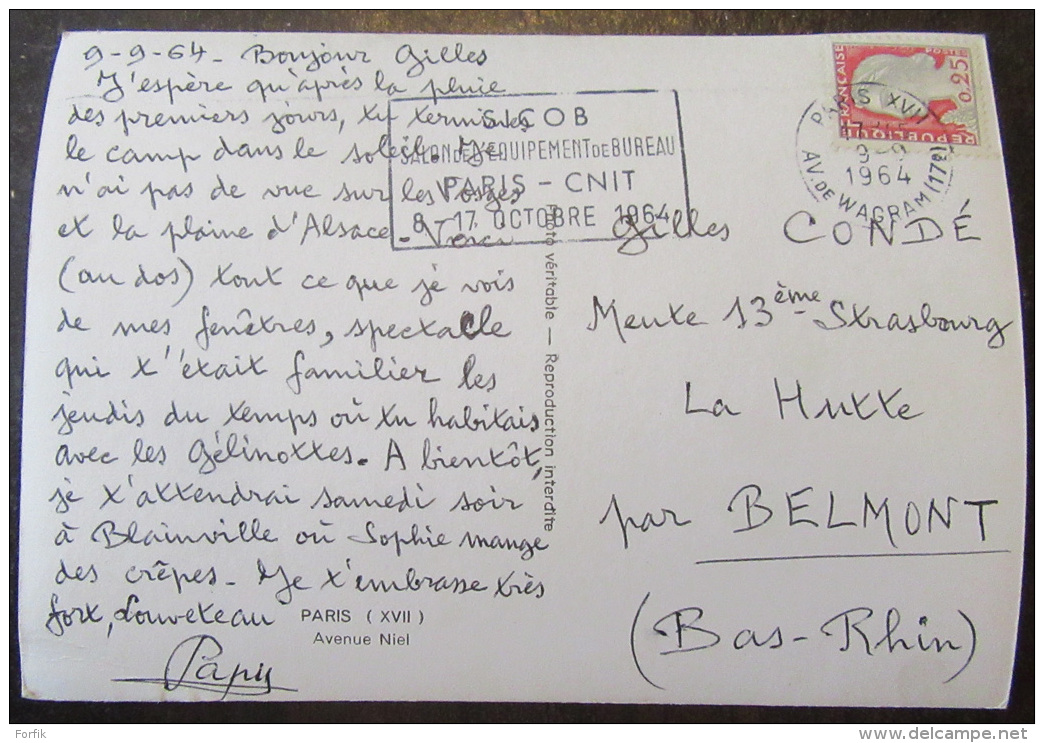 9-9-64 - Bonjour Gilles
J'espère qu'après la pluie
des premiers jours, tu termines
le camp dans le soleil. Je
n'ai pas de vue sur les Vosges
et la plaine d'Alsace - Voici
(au dos) tout ce que je vois
de mes fenêtres, spectacle
qui t'était familier les
jeudis du temps où tu habitais
avec les Gélinottes. A bientôt,
je t'attendrai samedi soir
à Blainville où Sophie mange
des crêpes - Je t'embrasse très
fort, Louveteau
Papy
PARIS (XVII)
Avenue Niel
SICOB
SALON DE L'EQUIPEMENT DE BUREAU
PARIS - CNIT
8 - 17 OCTOBRE 1964
Photo véritable — Reproduction interdite
REPUBLIQUE FRANÇAISE
POSTES
0,25
PARIS XVII
9-9
1964
AV. DE WAGRAM (17e)
Gilles CONDÉ
Meute 13ème Strasbourg
La Hutte
par BELMONT
(Bas-Rhin)
Forfik
www.delcampe.net